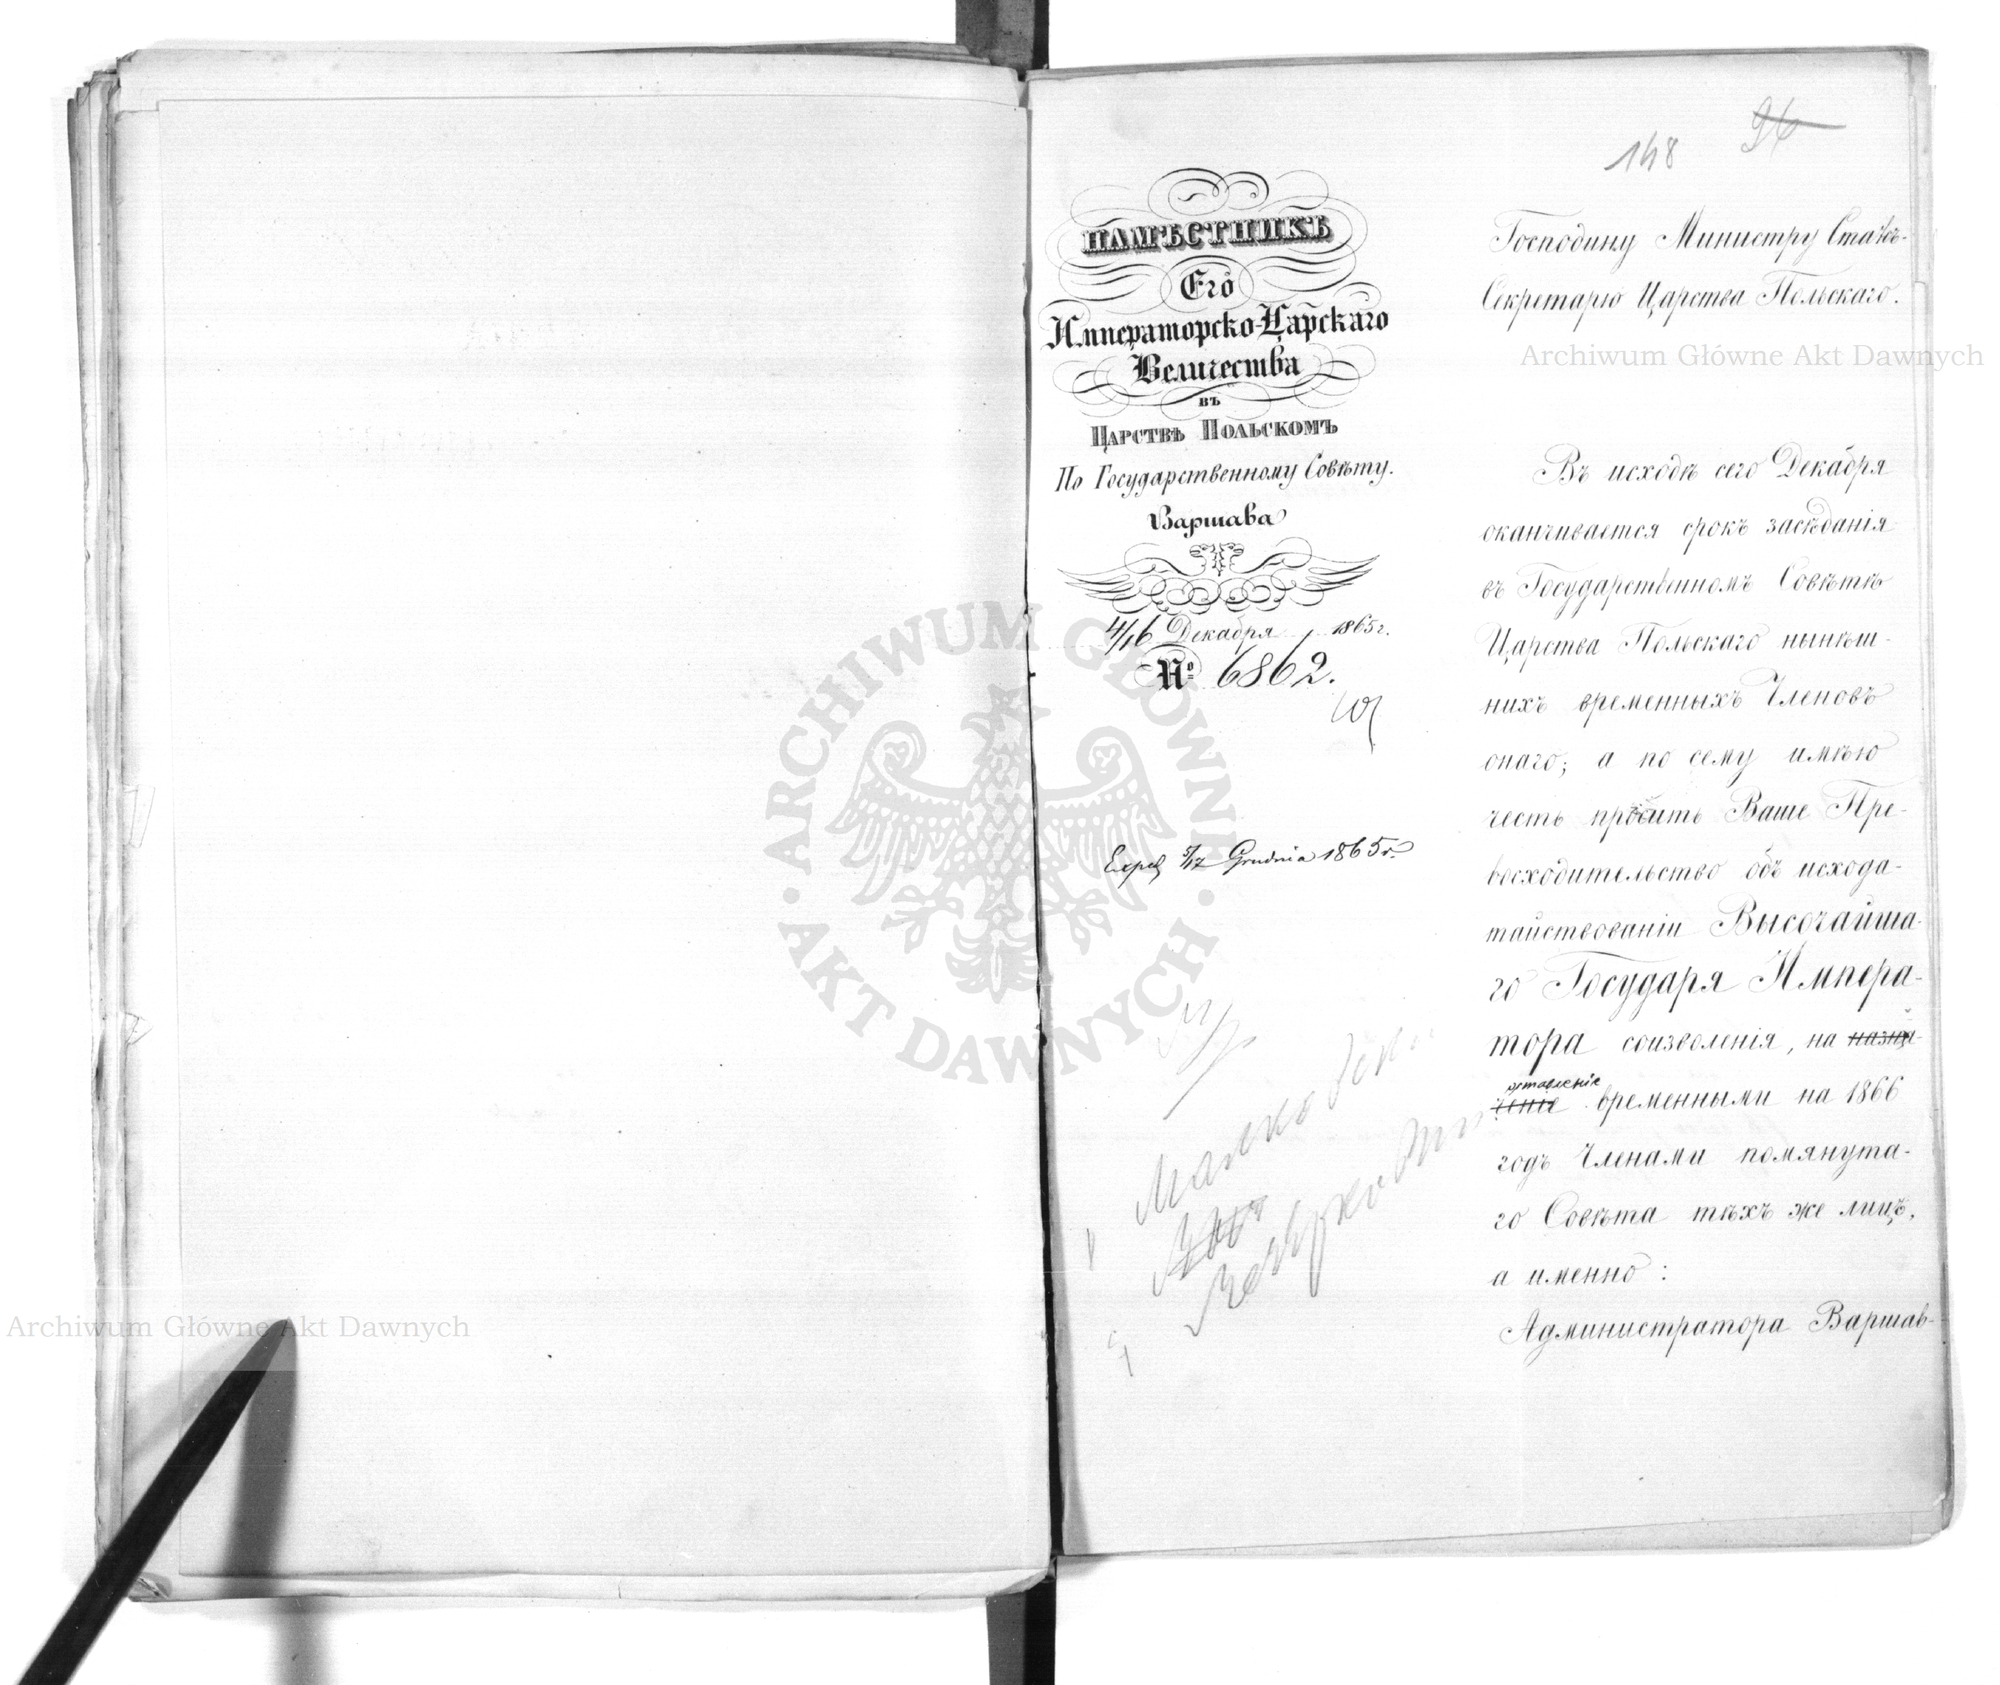 148 96
НАМѢСТНИКЪ
Его
Императорско-Царскаго
Величества
въ
Царствѣ Польскомъ
По Государственному Совѣту.
Варшава
4/16 Декабря 1865 г.
№ 6862.
Exped 5/17 Grudnia 1865 r.
Господину Министру Статсъ-
Секретарю Царства Польскаго.
Въ исходѣ сего Декабря
оканчивается срокъ засѣданія
въ Государственномъ Совѣтѣ
Царства Польскаго нынѣш-
нихъ временныхъ Членовъ
онаго; а по сему имѣю
честь просить Ваше Пре-
восходительство объ исхода-
тайствованіи Высочайша-
го Государя Импера-
тора соизволенія, на назна-
оставленіе
ченіе временными на 1866
годъ Членами помянута-
го Совѣта тѣхъ же лицъ,
а именно:
Администратора Варшав-
Archiwum Główne Akt Dawnych
Archiwum Główne Akt Dawnych
ARCHIWUM GŁÓWNE · AKT DAWNYCH ·